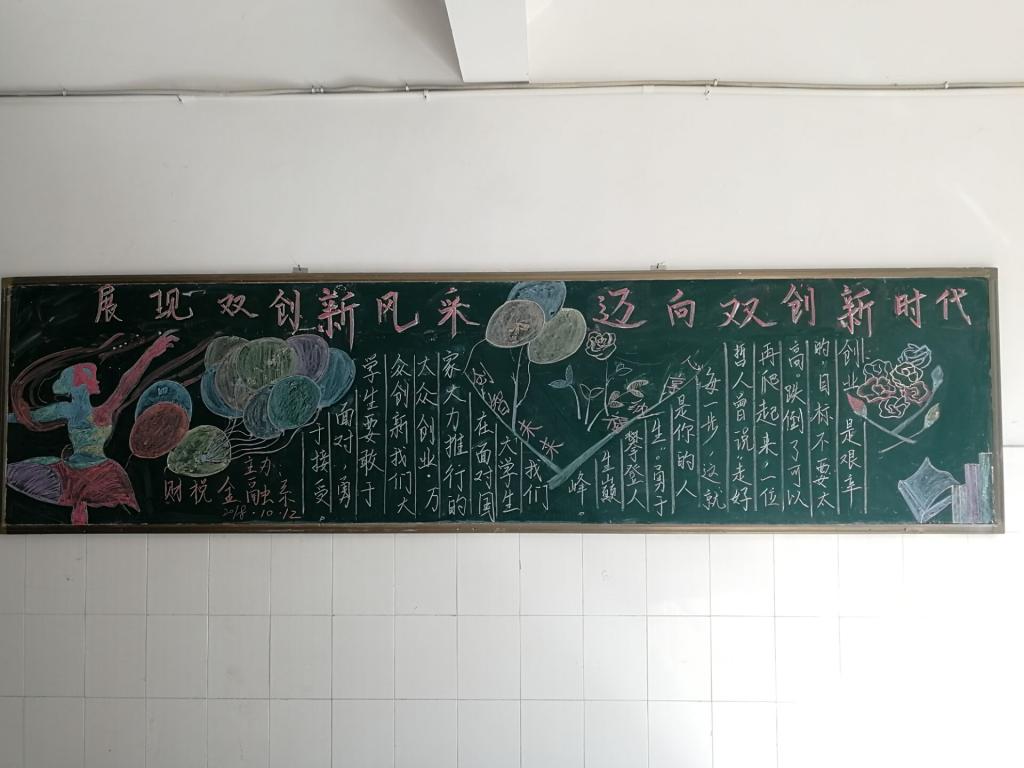 展现双创新风采 迈向双创新时代
创业是艰辛
的,目标不要太
高,跌倒了可以
再爬起来,一位
哲人曾说:走好
每一步,这就
是你的人
生"勇于
攀登人
生巅
峰。
未来
我们
大学生
在面对国
家大力推行的
大众创业,万
众创新,我们大
学生要敢于
面对,勇
于接受。
主办:
财税金融系
2018.10.12